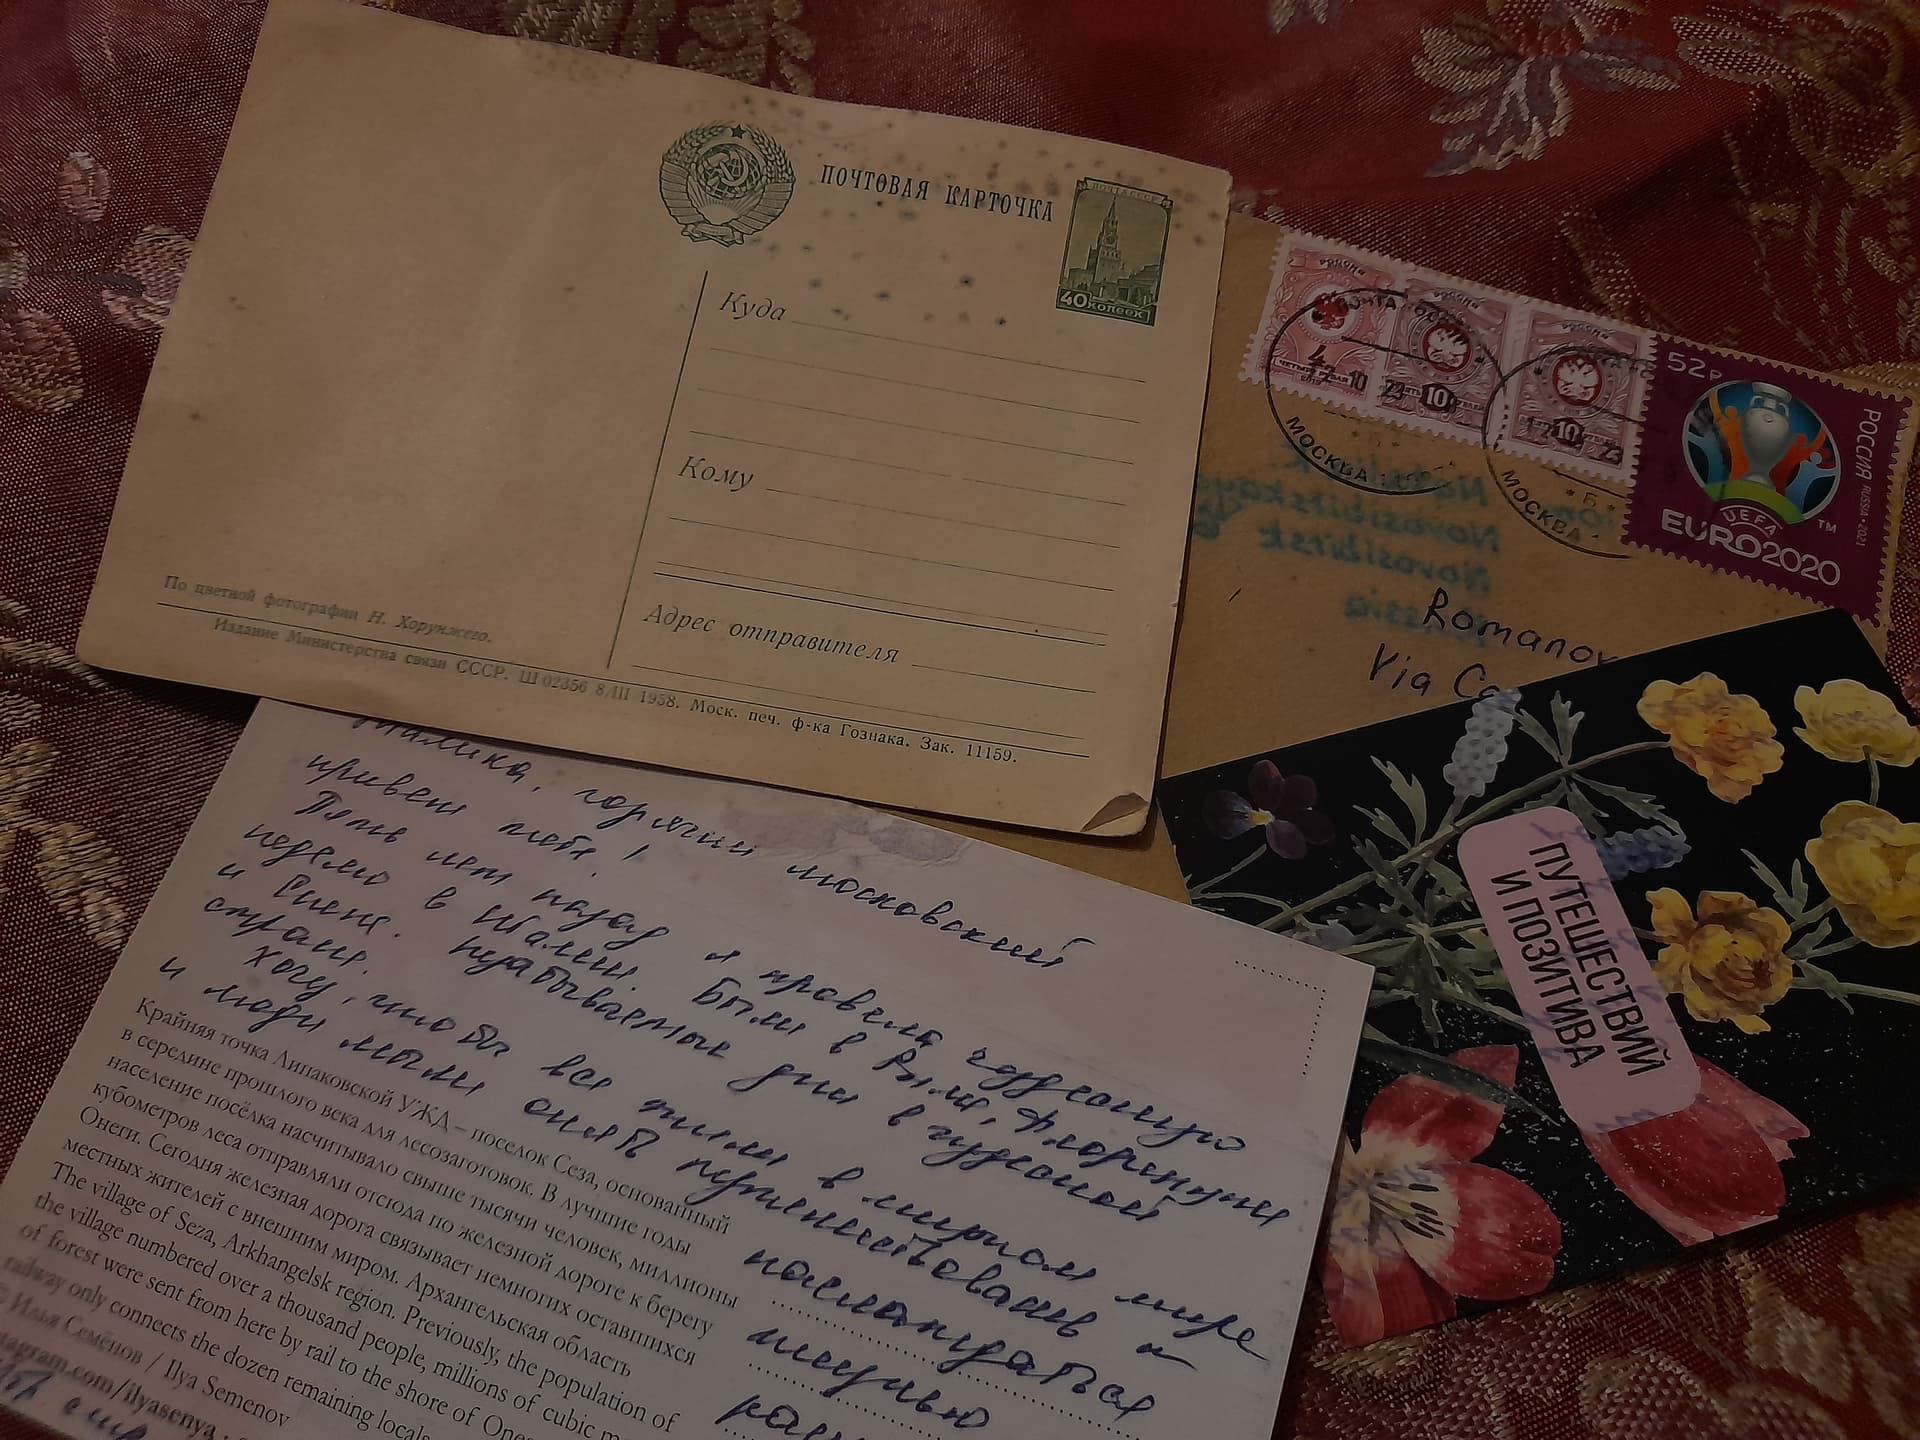 ПОЧТОВАЯ КАРТОЧКА
ПОЧТА СССР
40 копеек
Куда
Кому
Адрес отправителя
По цветной фотографии Н. Хорунжего.
Издание Министерства связи СССР. Ш 02356 8/III 1958. Моск. печ. ф-ка Гознака. Зак. 11159.
РОССИЯ
4
ЧЕТЫРЕ РУБЛЯ
10
10
МОСКВА
МОСКВА
52₽
РОССИЯ RUSSIA • 2021
UEFA
EURO2020
TM
Novosibirskaya
Novosibirsk
Russia
Romanov
Via
ПУТЕШЕСТВИЙ
И ПОЗИТИВА
горячий московский
привет тебе!
Пять лет назад я провела чудесную
неделю в Италии. Были в Риме, Флоренции
и Сиене. Незабываемые дни в чудесной
стране.
Хочу, чтобы все жили в мирном мире
и люди могли опять путешествовать и
наслаждаться
жизнью
Крайняя точка Липаковской УЖД – поселок Сеза, основанный
в середине прошлого века для лесозаготовок. В лучшие годы
население посёлка насчитывало свыше тысячи человек, миллионы
кубометров леса отправляли отсюда по железной дороге к берегу
Онеги. Сегодня железная дорога связывает немногих оставшихся
местных жителей с внешним миром. Архангельская область
The village of Seza, Arkhangelsk region. Previously, the population of
the village numbered over a thousand people, millions of cubic m
of forest were sent from here by rail to the shore of One
railway only connects the dozen remaining locals
© Илья Семёнов / Ilya Semenov
tagram.com/ilyasenya